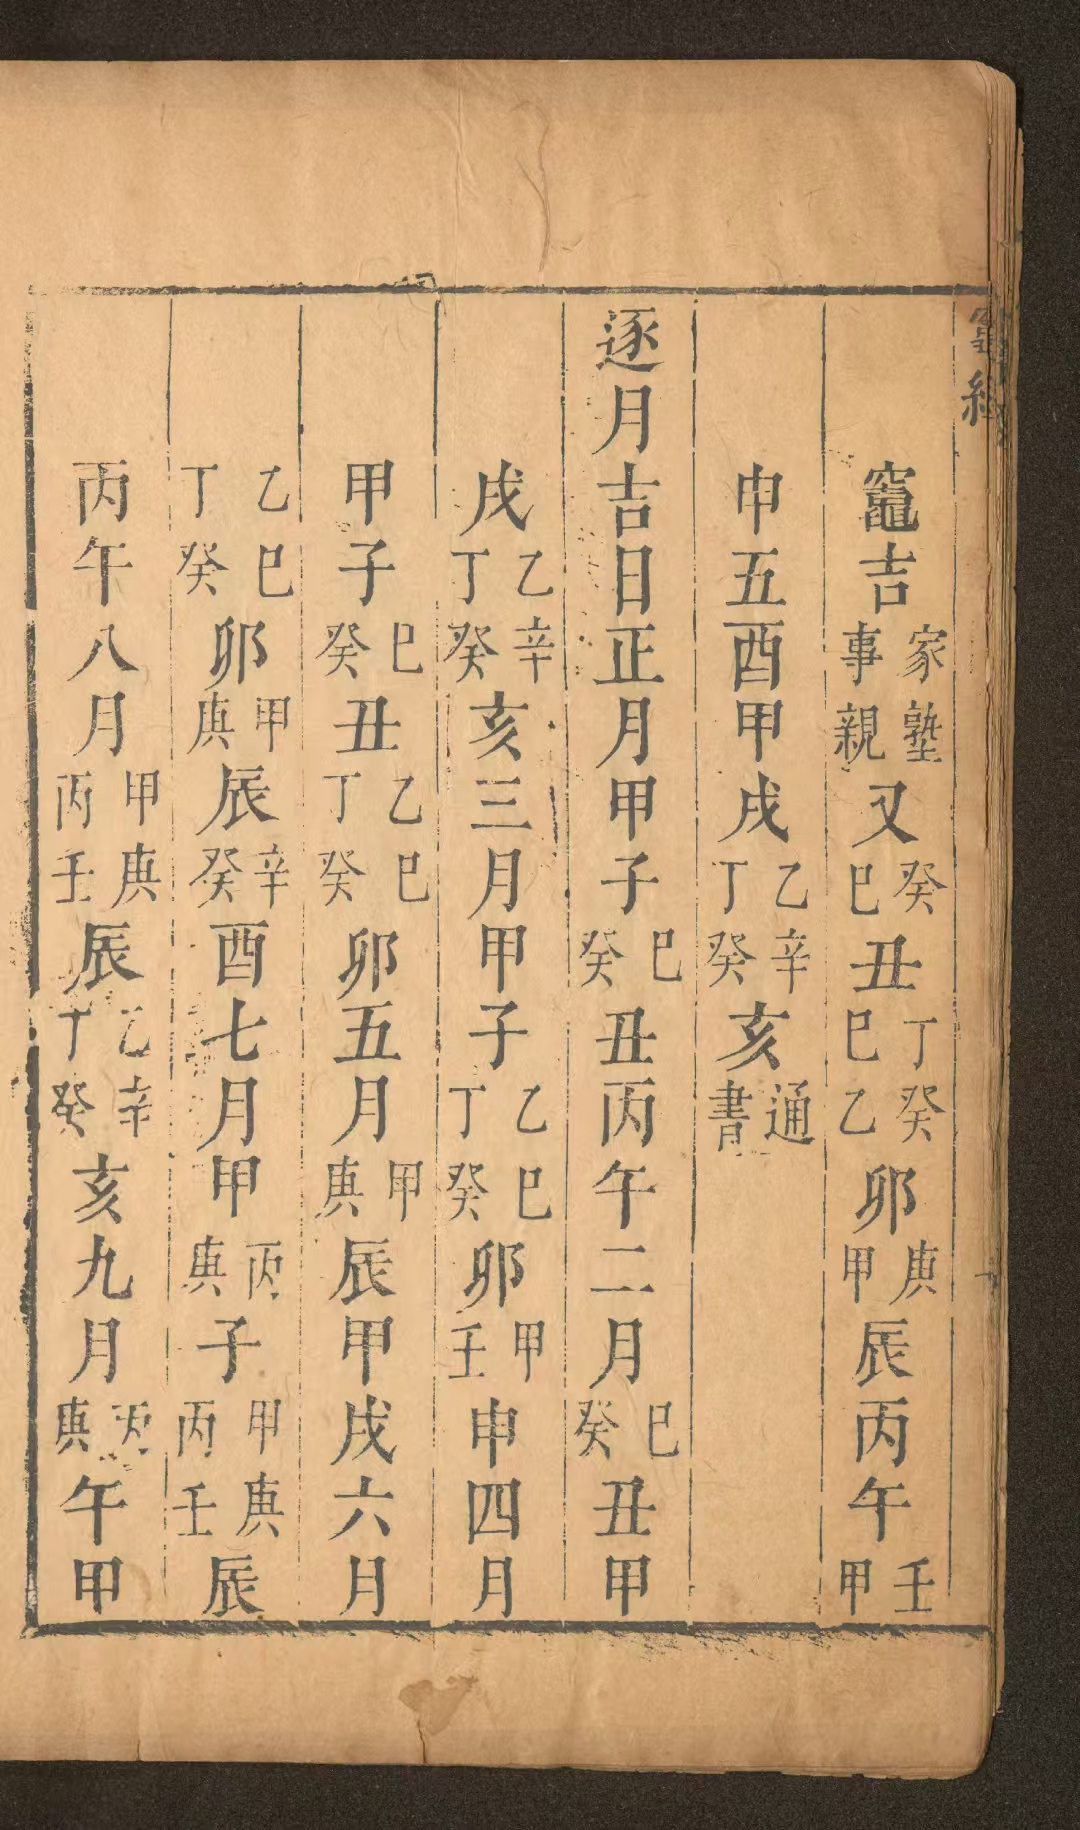 竈吉家塾事親又癸巳丑丁癸巳乙卯庚甲辰丙午壬甲
申五酉甲戌乙辛丁癸亥通書
逐月吉日正月甲子巳癸丑丙午二月巳癸丑甲
戌乙辛丁癸亥三月甲子乙巳丁癸卯甲壬申四月
甲子巳癸丑乙巳丁癸卯五月甲庚辰甲戌六月
乙巳丁癸卯甲庚辰辛癸酉七月甲丙庚子甲庚丙壬辰
丙午八月甲庚丙壬辰乙辛丁癸亥九月丙庚午甲